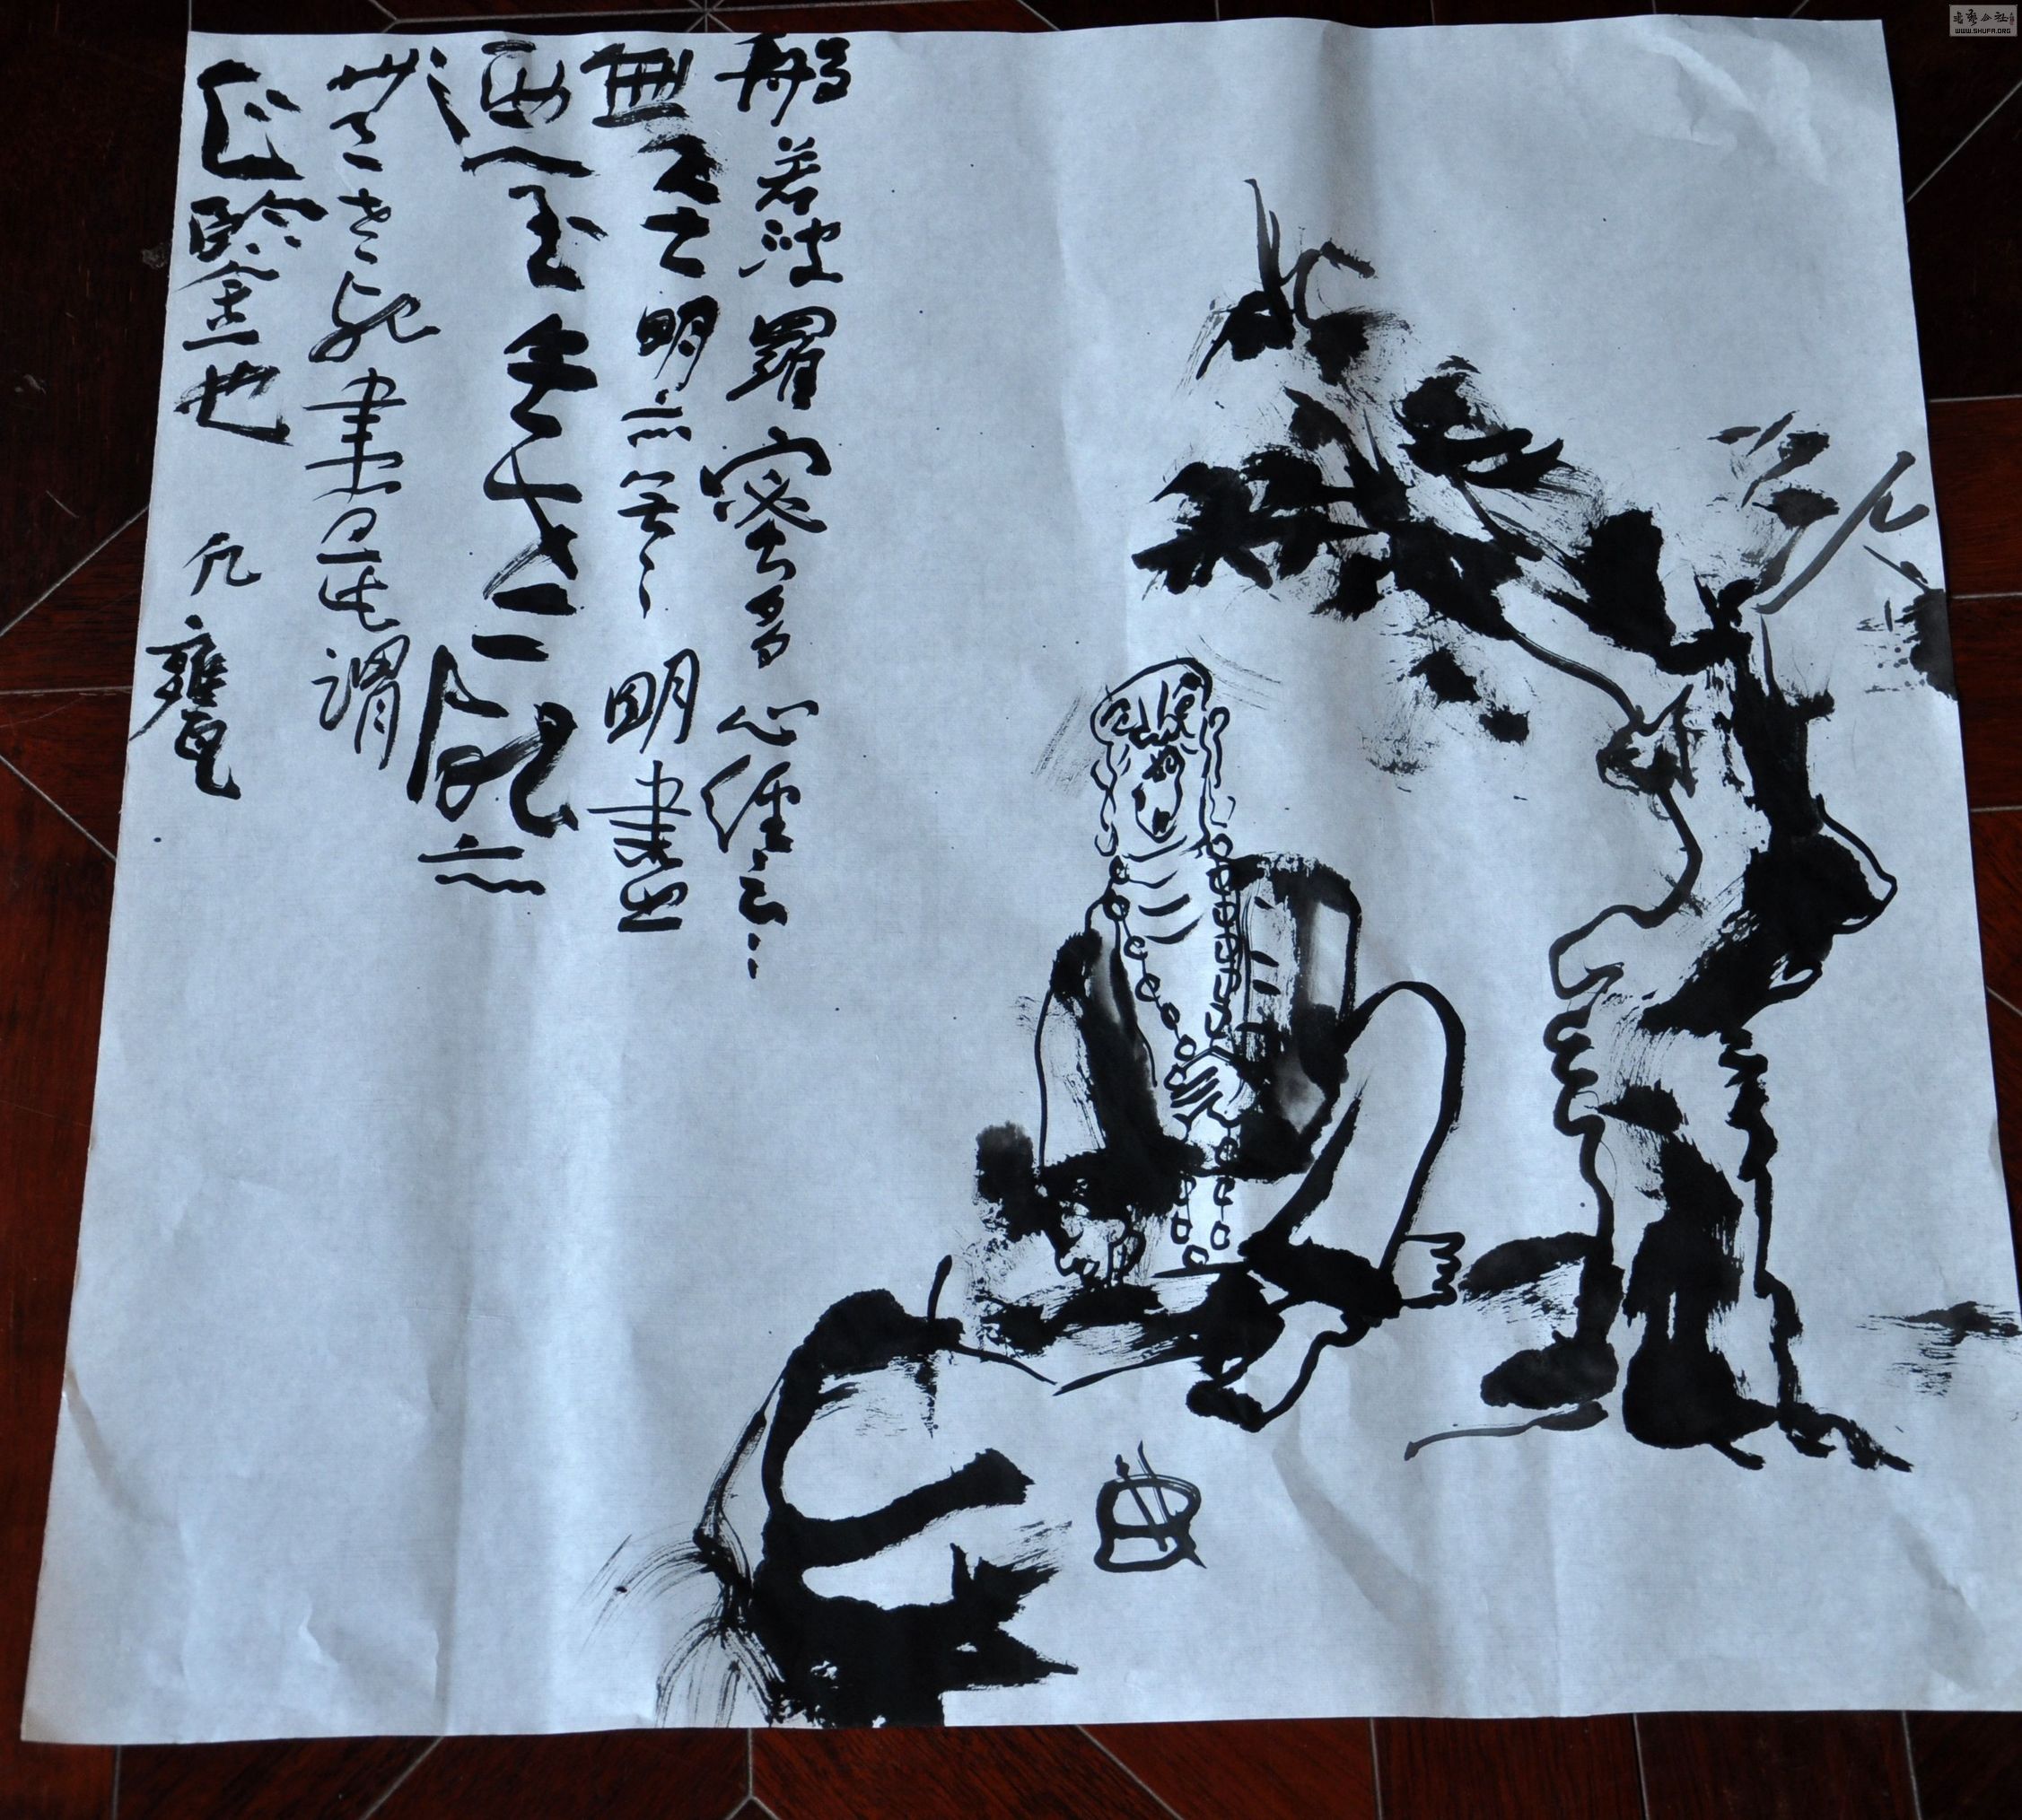 般若波羅蜜多心經云
無無明亦無無明盡
迺至無老死亦
無老死盡是謂
也
書藝公社
WWW.SHUFA.ORG